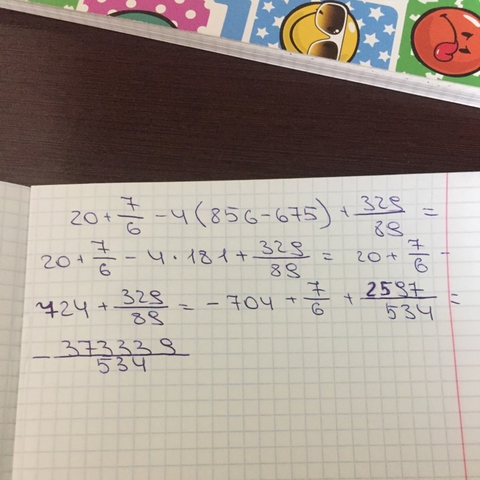 20 + 7/6 - 4(856 - 675) + 329/89 =
20 + 7/6 - 4 · 181 + 329/89 = 20 + 7/6 -
724 + 329/89 = -704 + 7/6 + 2597/534 =
- 373339/534